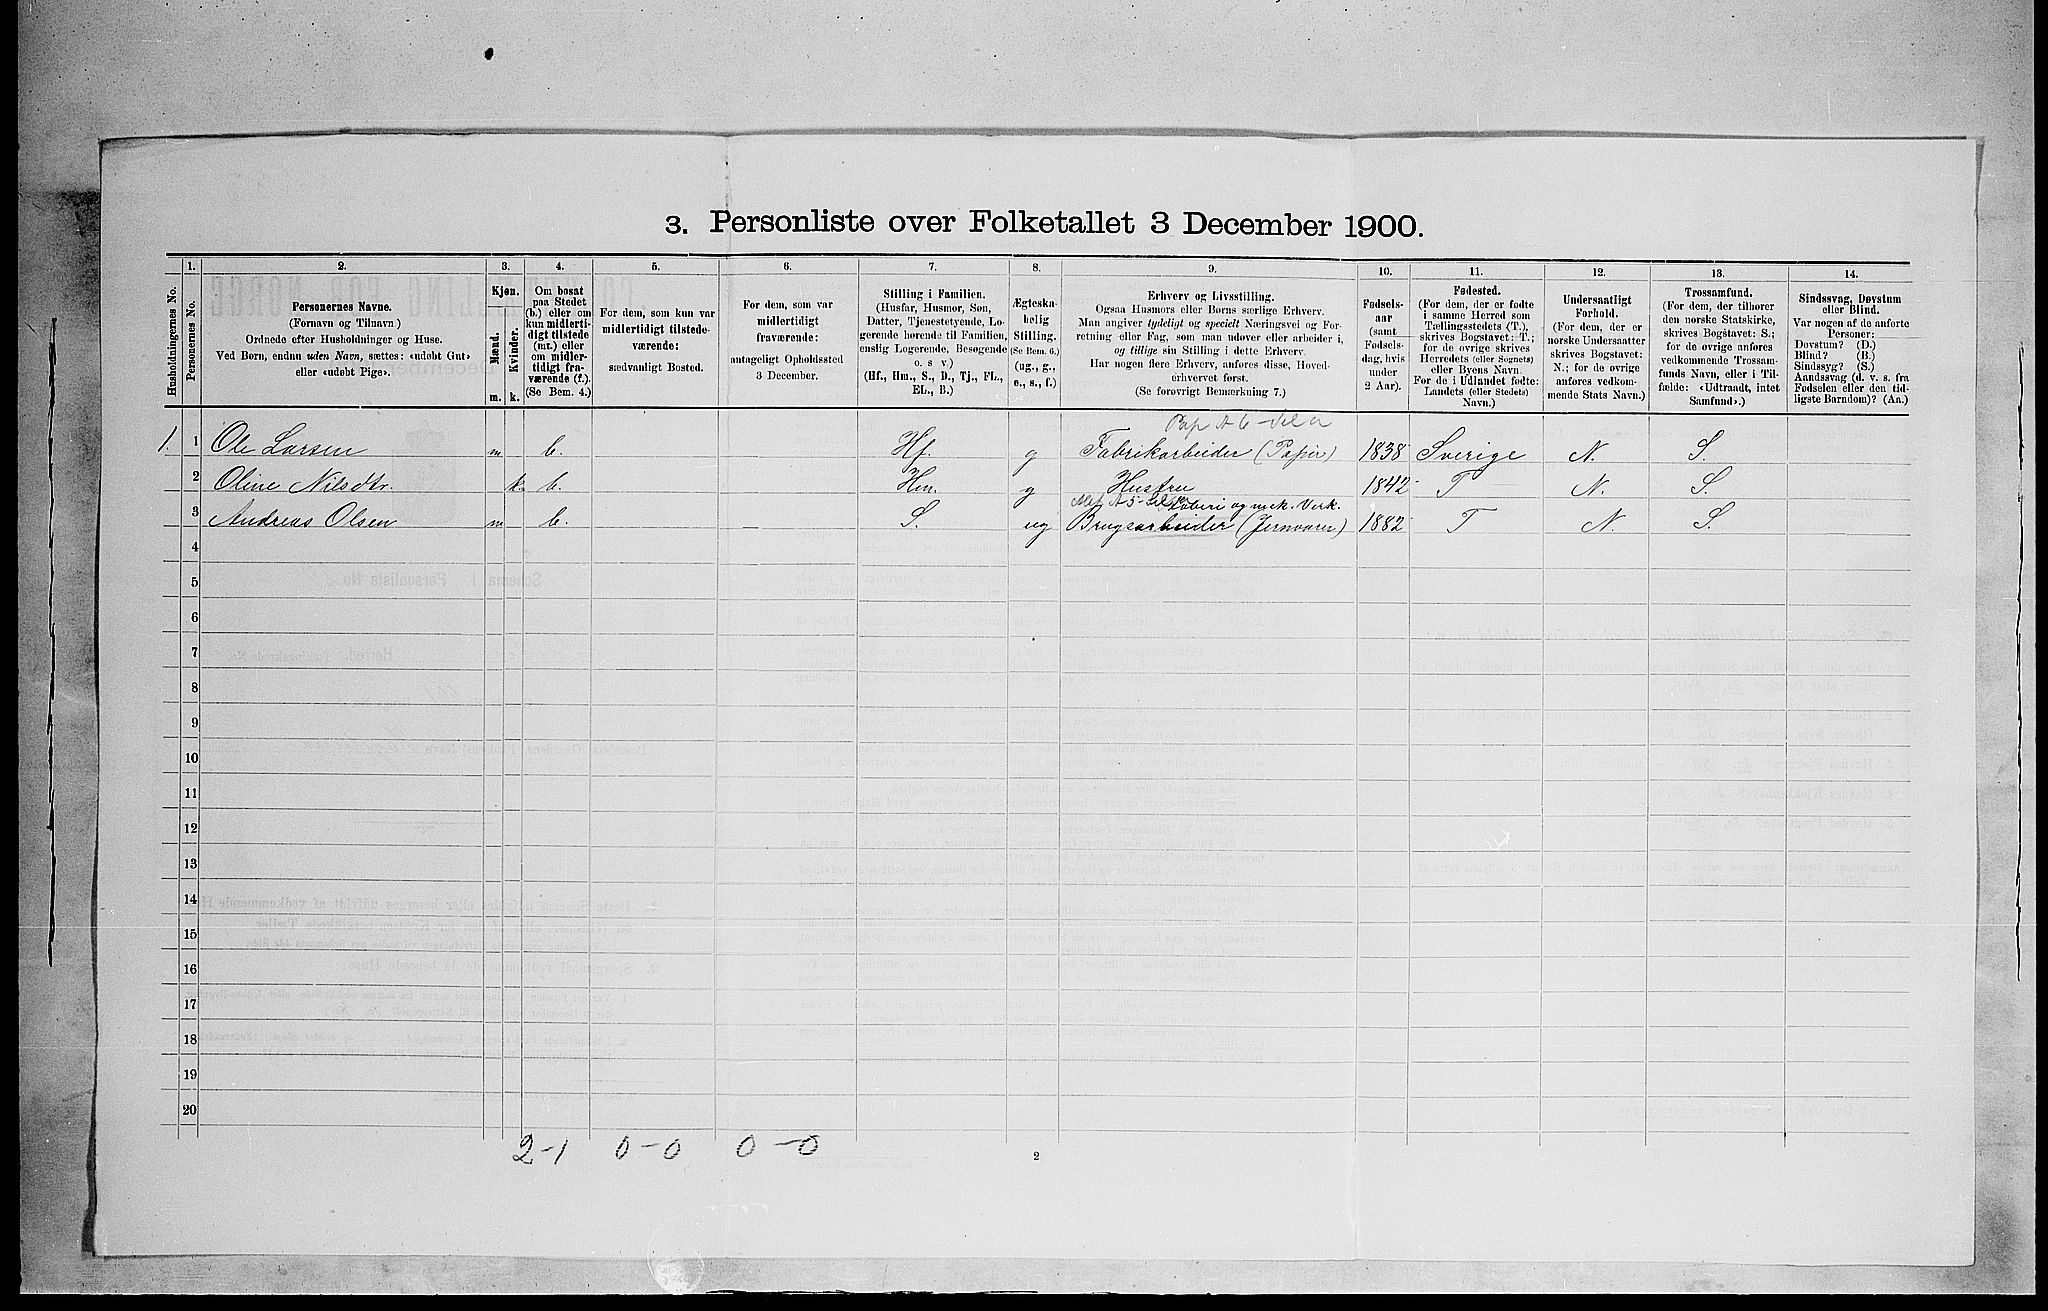 3. Personliste over Folketallet 3 December 1900.
Husholdningernes No.
1.
Personernes No.
2.
Personernes Navne.
(Fornavn og Tilnavn)
Ordnede efter Husholdninger og Huse.
Ved Børn, endnu uden Navn, sættes: «udøbt Gut»
eller «udøbt Pige».
3.
Kjøn.
Mænd.
Kvinder.
m. k.
4.
Om bosat
paa Stedet
(b.) eller om
kun midlerti-
digt tilstede
(mt.) eller
om midler-
tidigt fra-
værende (f.)
(Se Bem. 4.)
5.
For dem, som kun var
midlertidigt tilstede-
værende:
sædvanligt Bosted.
6.
For dem, som var
midlertidigt
fraværende:
antageligt Opholdssted
3 December.
7.
Stilling i Familien.
(Husfar, Husmor, Søn,
Datter, Tjenestetyende, Lo-
gerende hørende til Familien,
enslig Logerende, Besøgende
o. s v.)
(Hf., Hm., S., D., Tj., FL.,
EL., B.)
8.
Ægteska-
belig
Stilling.
(Se Bem. 6.)
(ug., g.,
e., s., f.)
9.
Erhverv og Livsstilling.
Ogsaa Husmors eller Børns særlige Erhverv.
Man angiver tydeligt og specielt Næringsvei og For-
retning eller Fag, som man udøver eller arbeider i,
og tillige sin Stilling i dette Erhverv.
Har nogen flere Erhverv, anføres disse, Hoved-
erhvervet først.
(Se forøvrigt Bemærkning 7.)
10.
Fødsels-
aar
(samt
Fødsels-
dag, hvis
under
2 Aar).
11.
Fødested.
(For dem, der er fødte
i samme Herred som
Tællingsstedets (T.),
skrives Bogstavet: T.;
for de øvrige skrives
Herredets (eller Sognets)
eller Byens Navn.
For de i Udlandet fødte:
Landets (eller Stedets)
Navn.)
12.
Undersaatligt
Forhold.
(For dem, der er
norske Undersaatter
skrives Bogstavet:
N.; for de øvrige
anføres vedkom-
mende Stats Navn.)
13.
Trossamfund.
(For dem, der tilhører
den norske Statskirke,
skrives Bogstavet: S.;
for de øvrige anføres
vedkommende Trossam-
funds Navn, eller i Til-
fælde: «Udtraadt, intet
Samfund».)
14.
Sindssvag, Døvstum
eller Blind.
Var nogen af de anførte
Personer:
Døvstum? (D.)
Blind? (B.)
Sindssyg? (S.)
Aandssvag (d. v. s. fra
Fødselen eller den tid-
ligste Barndom)? (Aa.)
1. 1 Ole Larsen m b. Hf. g Fabrikarbeider (Papir) 1838 Sverige N. S.
2 Oline Nilsdtr. k b. Hm. g Hustru 1842 T N. S.
og mek. Verk.
3 Andreas Olsen m b. S. ug Brugsarbeider (Jernvarer) 1882 T N. S.
4
5
6
7
8
9
10
11
12
13
14
15
16
17
18
19
20
2-1 0-0 0-0
2